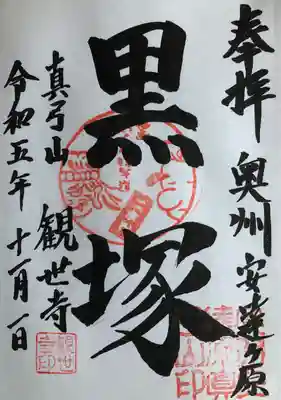 奉拝 奥州安達ヶ原
黒塚
真弓山 観世寺
令和五年十一月一日